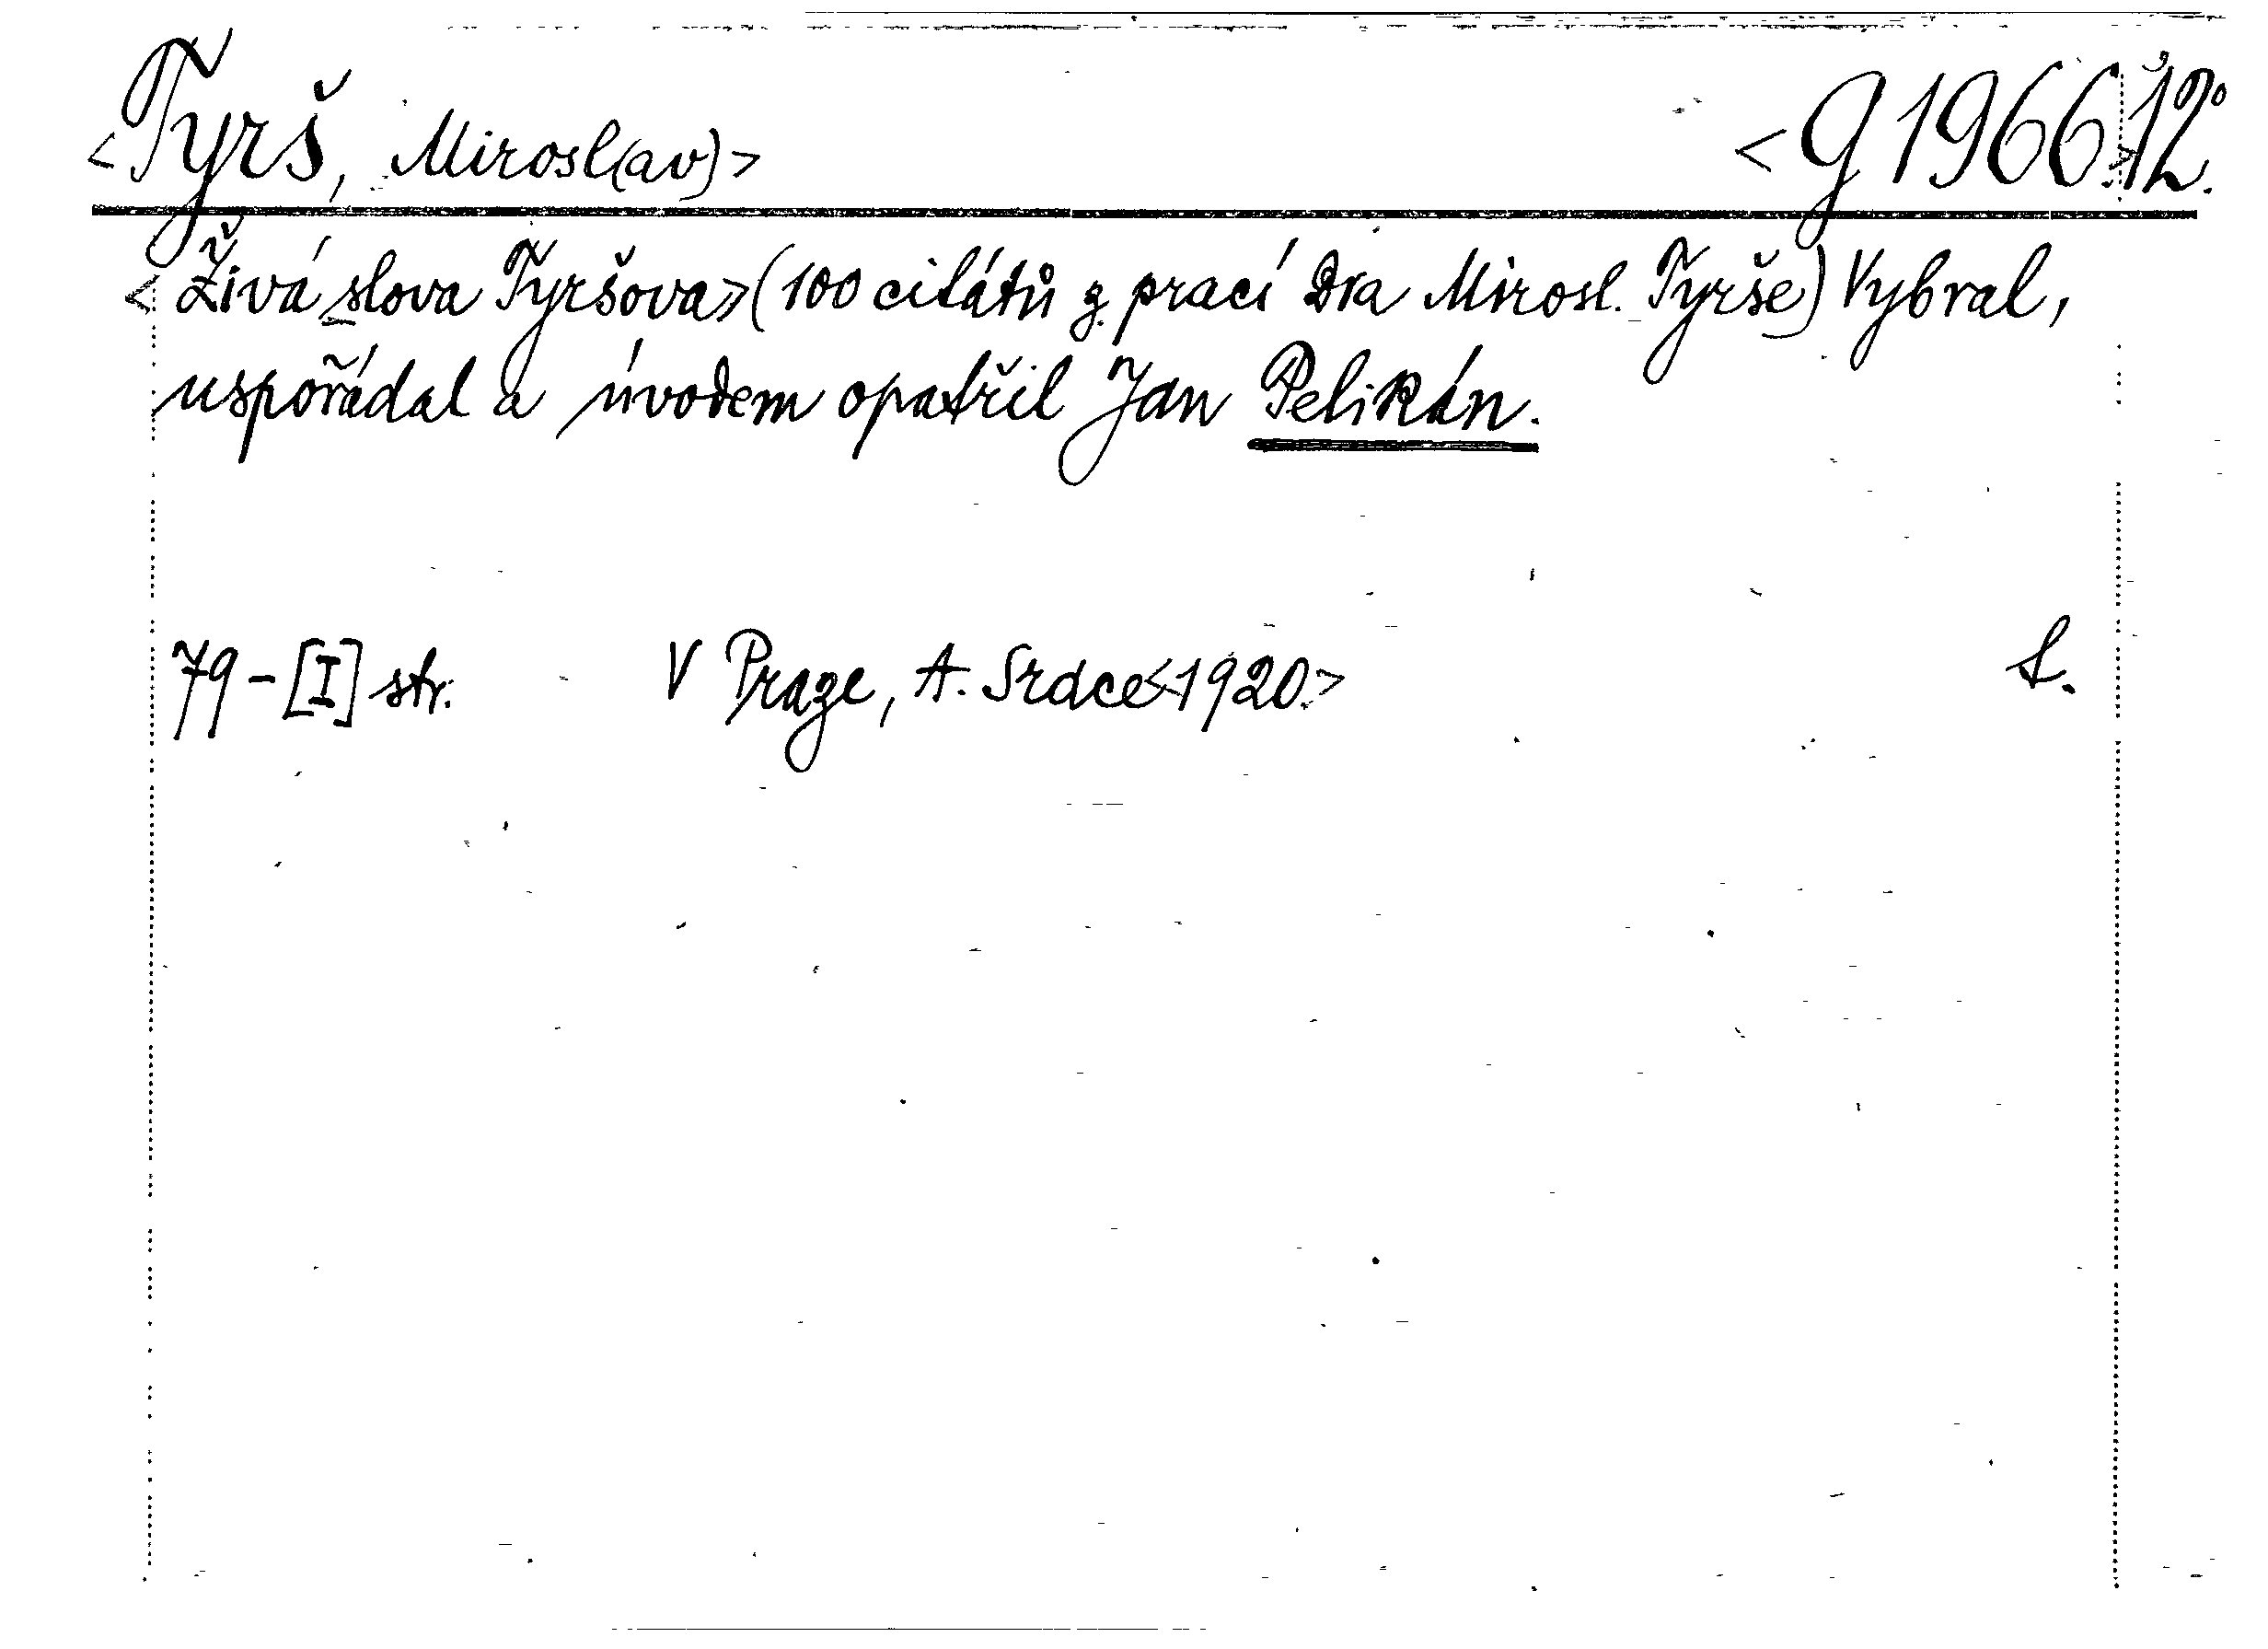 <Tyrš, Mirosl(av)> <g 1966.>12°.
<Živá slova Tyršova> (100 citátů z prací Dra Mirosl. Tyrše) Vybral,
uspořádal a úvodem opatřil Jan Pelikán.
79-[I] str. V Praze, A. Srdce <1920.>